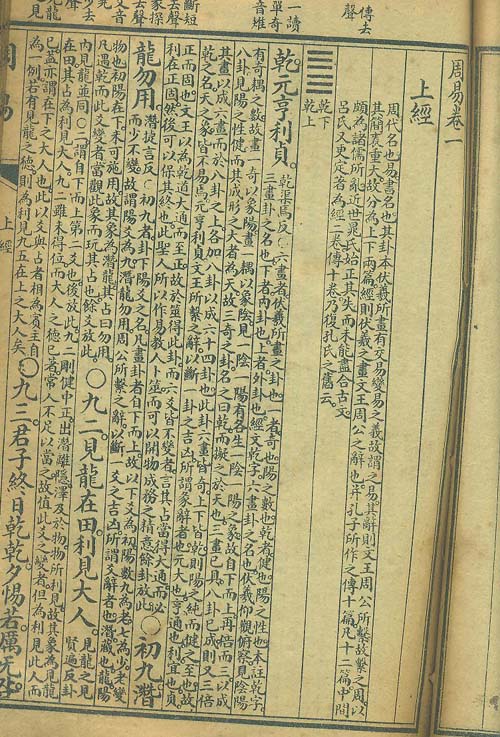 傳去
聲
一讀
單奇
音雉
周易卷一
上經
周代名也易書名也其卦本伏羲所畫有交易變易之義故謂之易其辭則文王周公所繫故繫之周以
其簡袠重大故分為上下兩篇經則伏羲之畫文王周公之辭也并孔子所作之傳十篇凡十二篇中間
頗為諸儒所亂近世晁氏始正其失而未能盡合古文
呂氏又更定著為經二卷傳十卷乃復孔氏之舊云
乾下
乾上
乾元亨利貞。乾渠焉反○六畫者伏羲所畫之卦也一者奇也陽之數也乾者健也陽之性也本註乾字
三畫卦之名也下者內卦也上者外卦也經文乾字六畫卦之名也伏羲仰觀俯察見陰陽
有奇耦之數故畫一奇以象陽畫一耦以象陰見一陰一陽有各生一陰一陽之象故自下而上再倍而三以成
八卦見陽之性健而其成形之大者為天故三奇之卦名之曰乾而擬之於天也三畫已具八卦已成則又三倍
其畫以成六畫而於八卦之上各加八卦以成六十四卦也此卦六畫皆奇上下皆乾則陽之純而健之至也故
乾之名天之象皆不易焉元亨利貞文王所繫之辭以斷一卦之吉凶所謂彖辭者也元大也亨通也利宜也貞
正而固也文王以為乾道大通而至正故於筮得此卦而六爻皆不變者言其占當得大通而必
利在正固然後可以保其終也此聖人所以作易教人卜筮而可以開物成務之精意餘卦放此
○初九潛
龍勿用。潛捷言反○初九者卦下陽爻之名凡畫卦者自下而上故以下爻為初陽數九為老七為少老變
而少不變故謂陽爻為九潛龍勿用周公所繫之辭以斷一爻之吉凶所謂爻辭者也潛藏也龍陽
物也初陽在下未可施用故其象為潛龍其占曰勿用
凡遇乾而此爻變者當觀此象而玩其占也餘爻放此
○九二見龍在田利見大人。見龍之見
賢遍反卦
內見龍並同○二謂自下而上第二爻也後放此九二剛健中正出潛離隱澤及於物物所利見故其象為見龍
在田其占為利見大人九二雖未得位而大人之德已著常人不足以當之故值此爻之變者但為利見此人而
已蓋亦謂在下之大人也此以爻與占者相為賓主自
為一例若有見龍之德則為利見九五在上之大人矣
○九三君子終日乾乾夕惕若厲无咎
上經